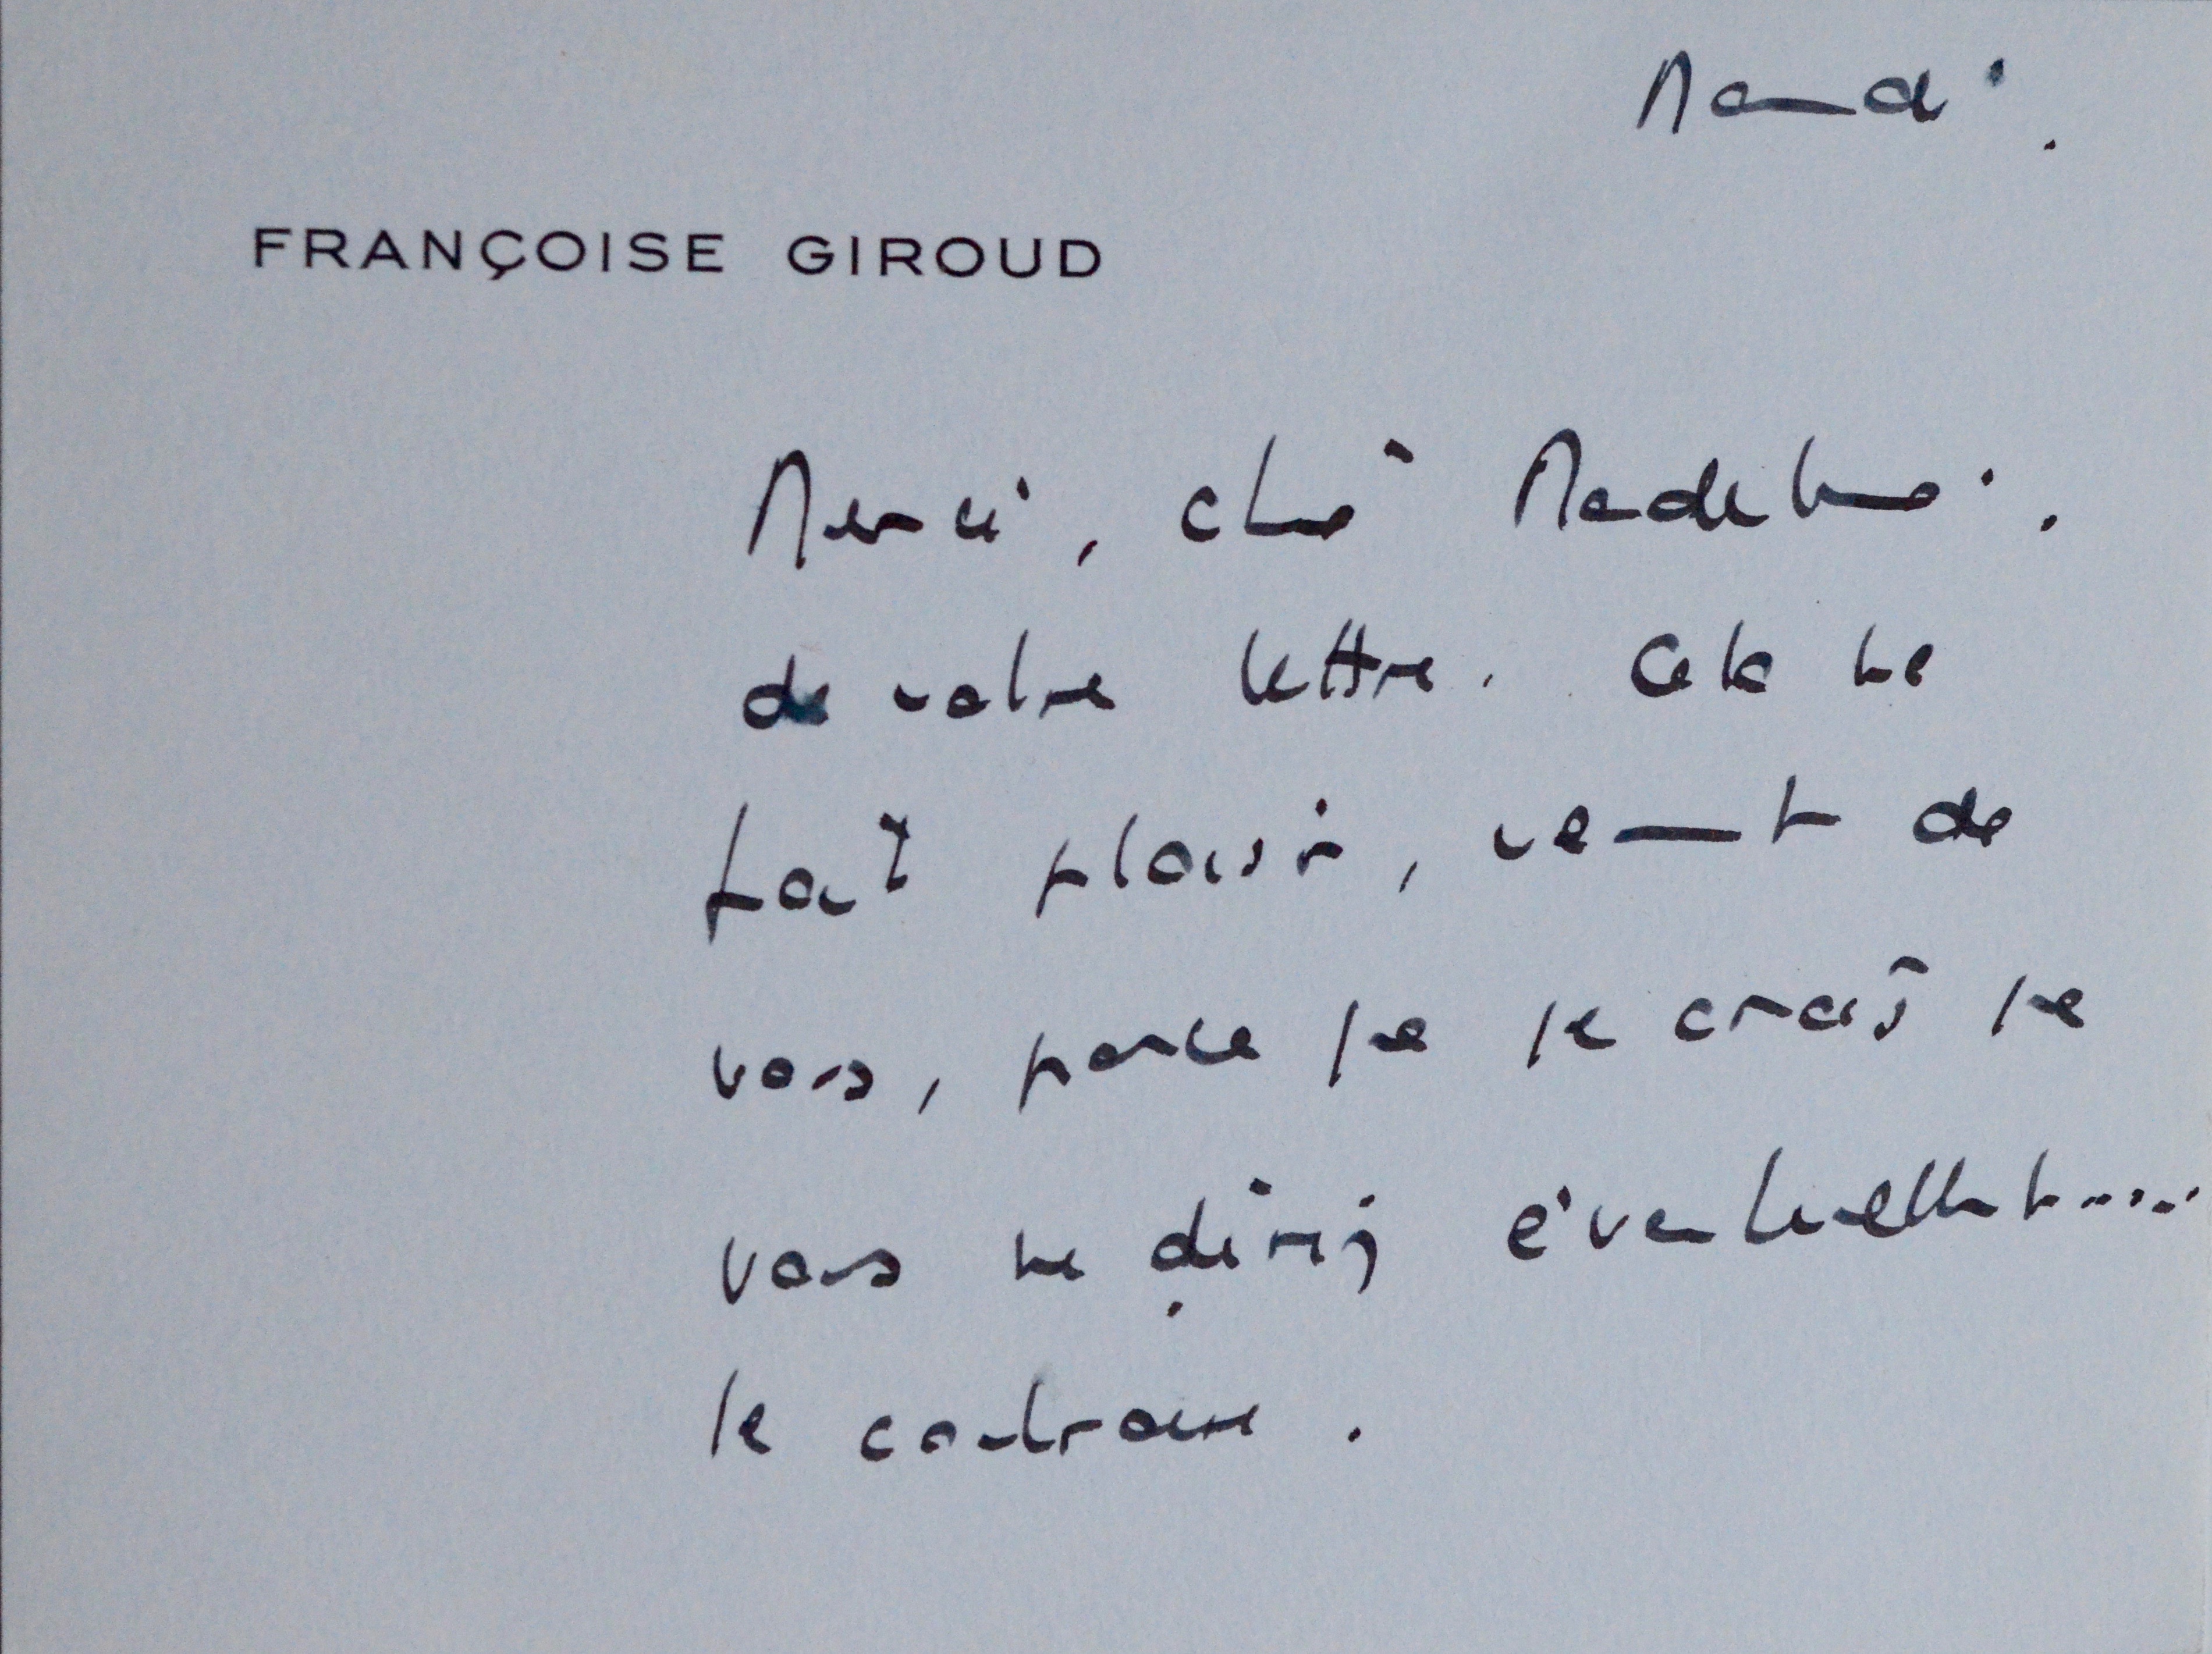 Mardi.
FRANÇOISE GIROUD
Merci, chère Madeleine.
de votre lettre. Cela me
fait plaisir, venant de
vous, parce que je crois que
vous me diriez éventuellement....
le contraire.